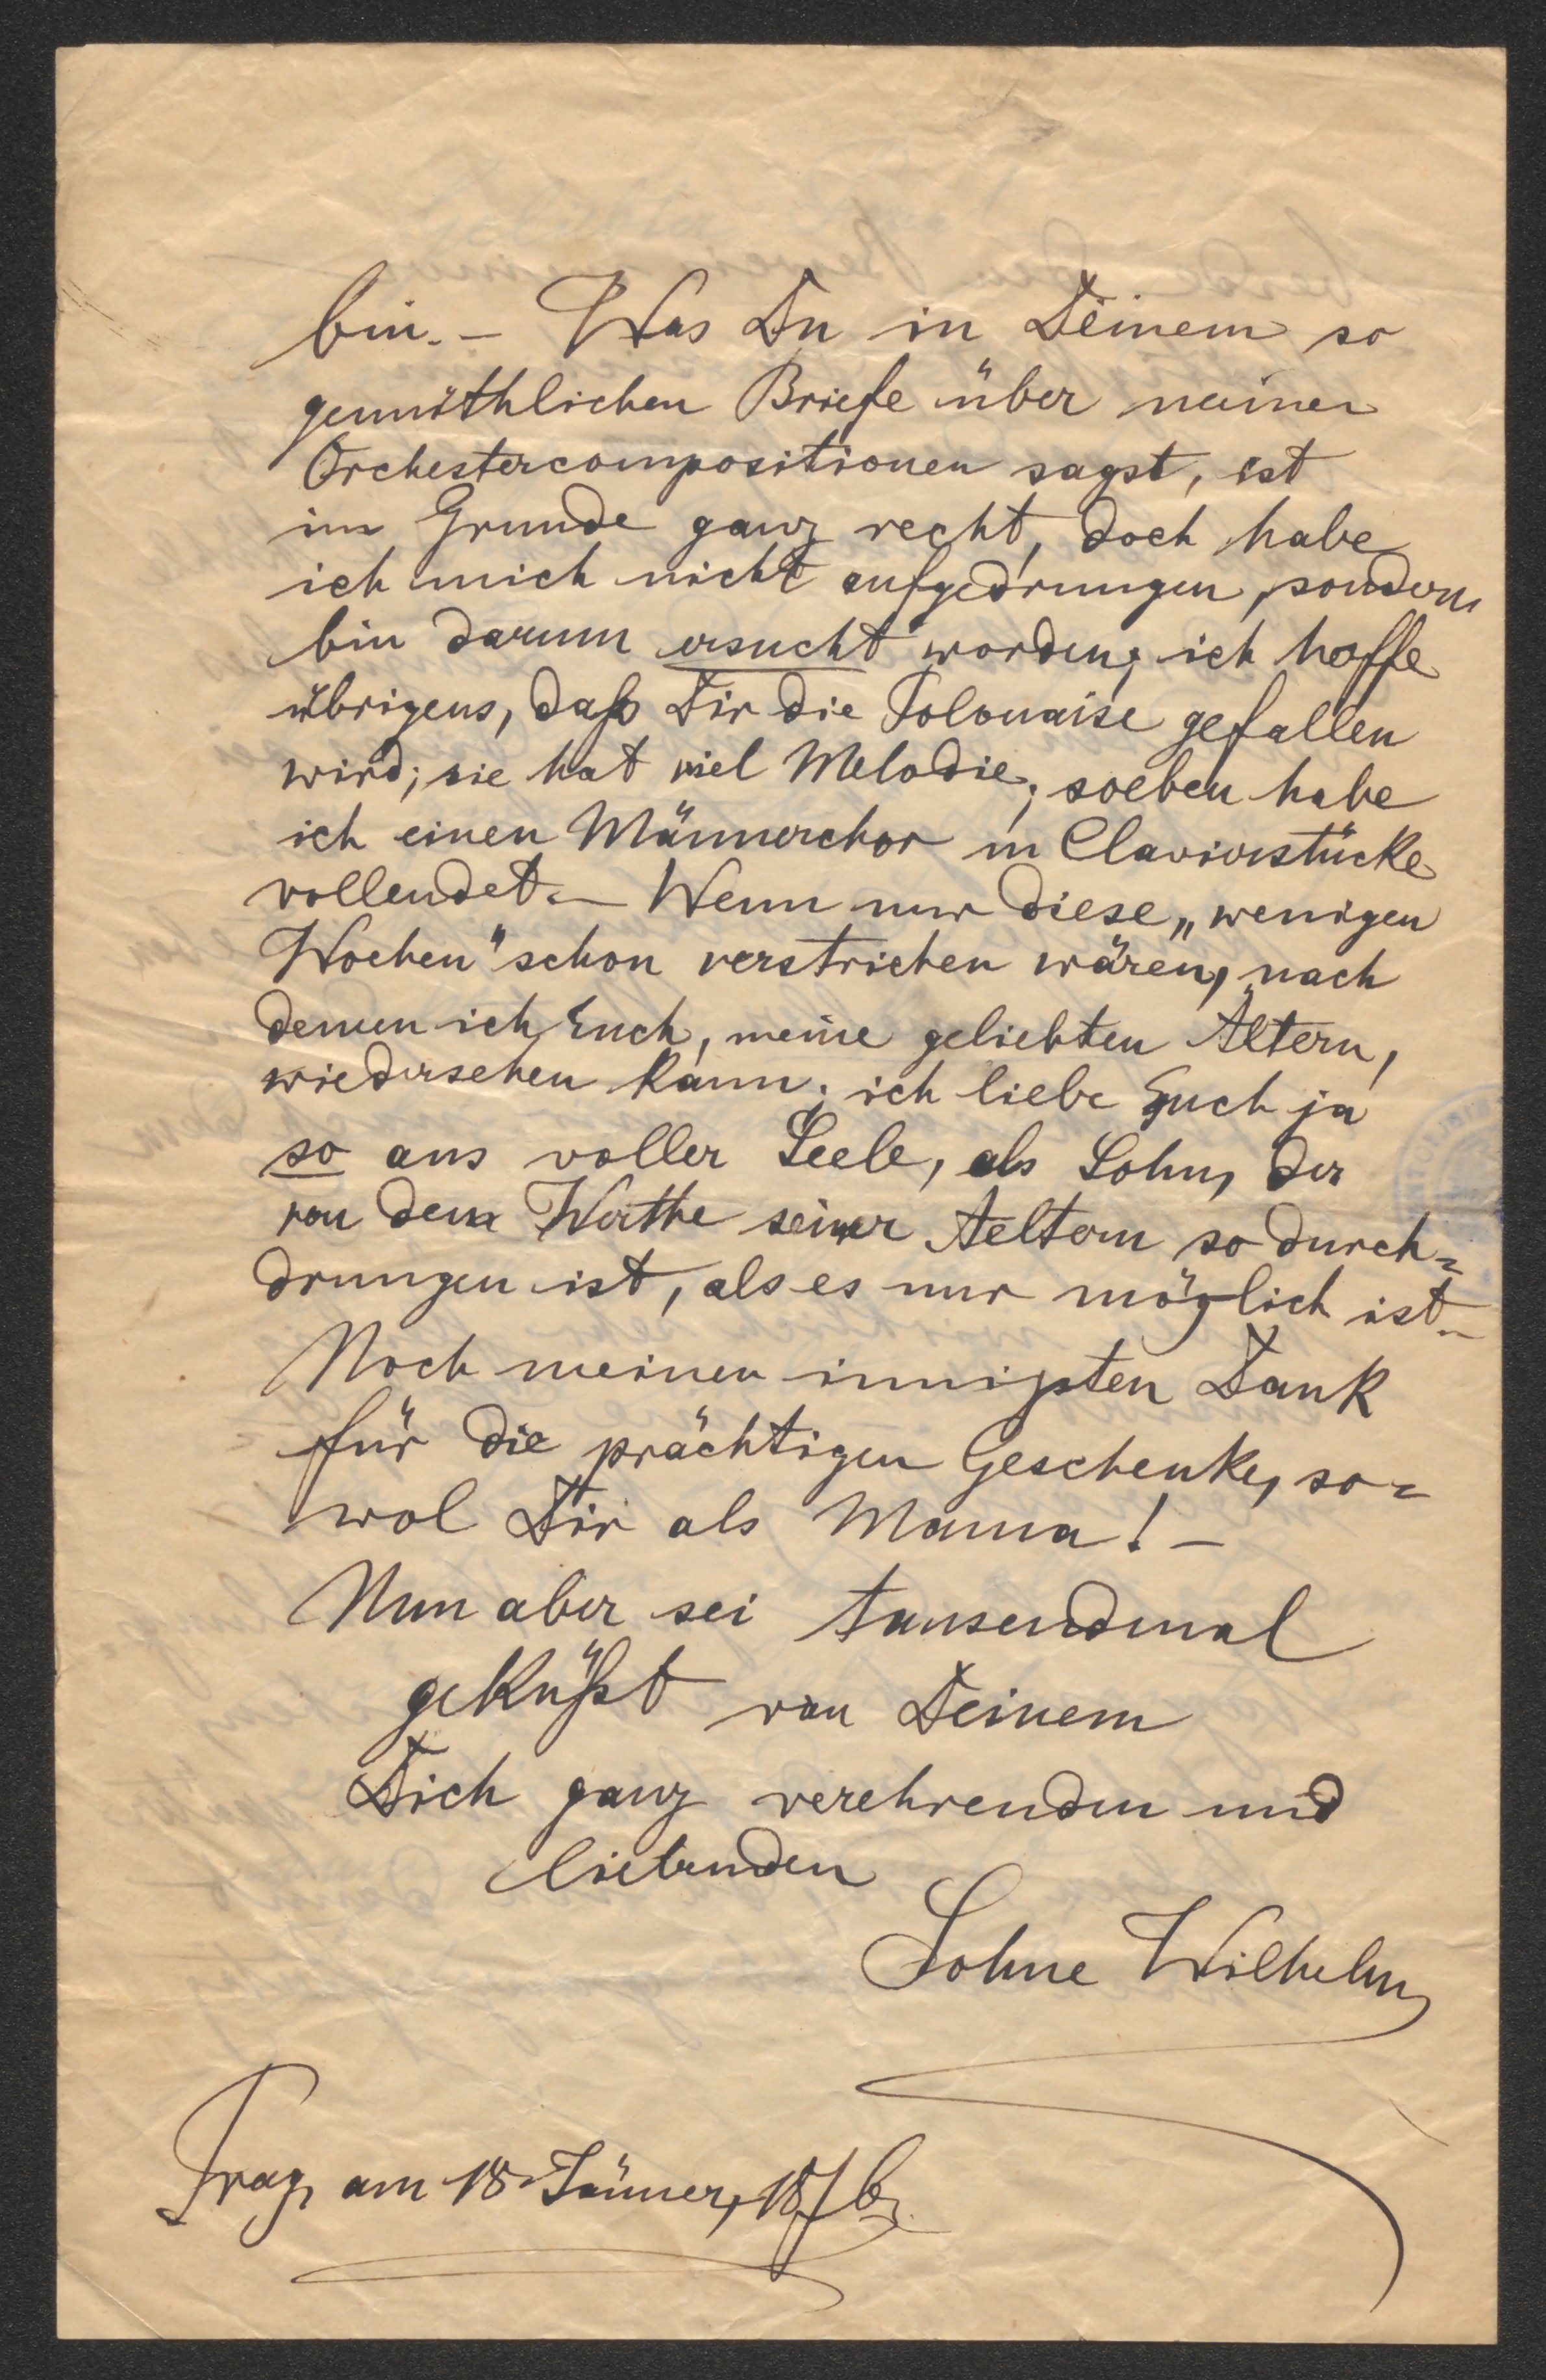 bin. – Was Du in Deinem so
gemüthlichen Briefe über meine
Orchestercompositionen sagst, ist
im Grunde ganz recht, doch habe
ich mich nicht aufgedrungen, sondern
bin darum ersucht worden; ich hoffe
übrigens, daß Dir die Polonaise gefallen
wird; sie hat viel Melodie; soeben habe
ich einen Männerchor u Clavierstücke
vollendet. – Wenn nur diese „wenigen
Wochen" schon verstrichen wären, nach
denen ich Euch, meine geliebten Ältern,
wiedersehen kann; ich liebe Euch ja
so aus voller Seele, als Sohn, der
von dem Werthe seiner Aeltern so durch=
drungen ist, als es nur möglich ist. –
Noch meinen innigsten Dank
für die prächtigen Geschenke, so=
wol Dir als Mama! –
Nun aber sei tausendmal
geküßt von Deinem
Dich ganz verehrenden und
liebenden
Sohne Wilhelm
Prag, am 18 Jänner, 1876.